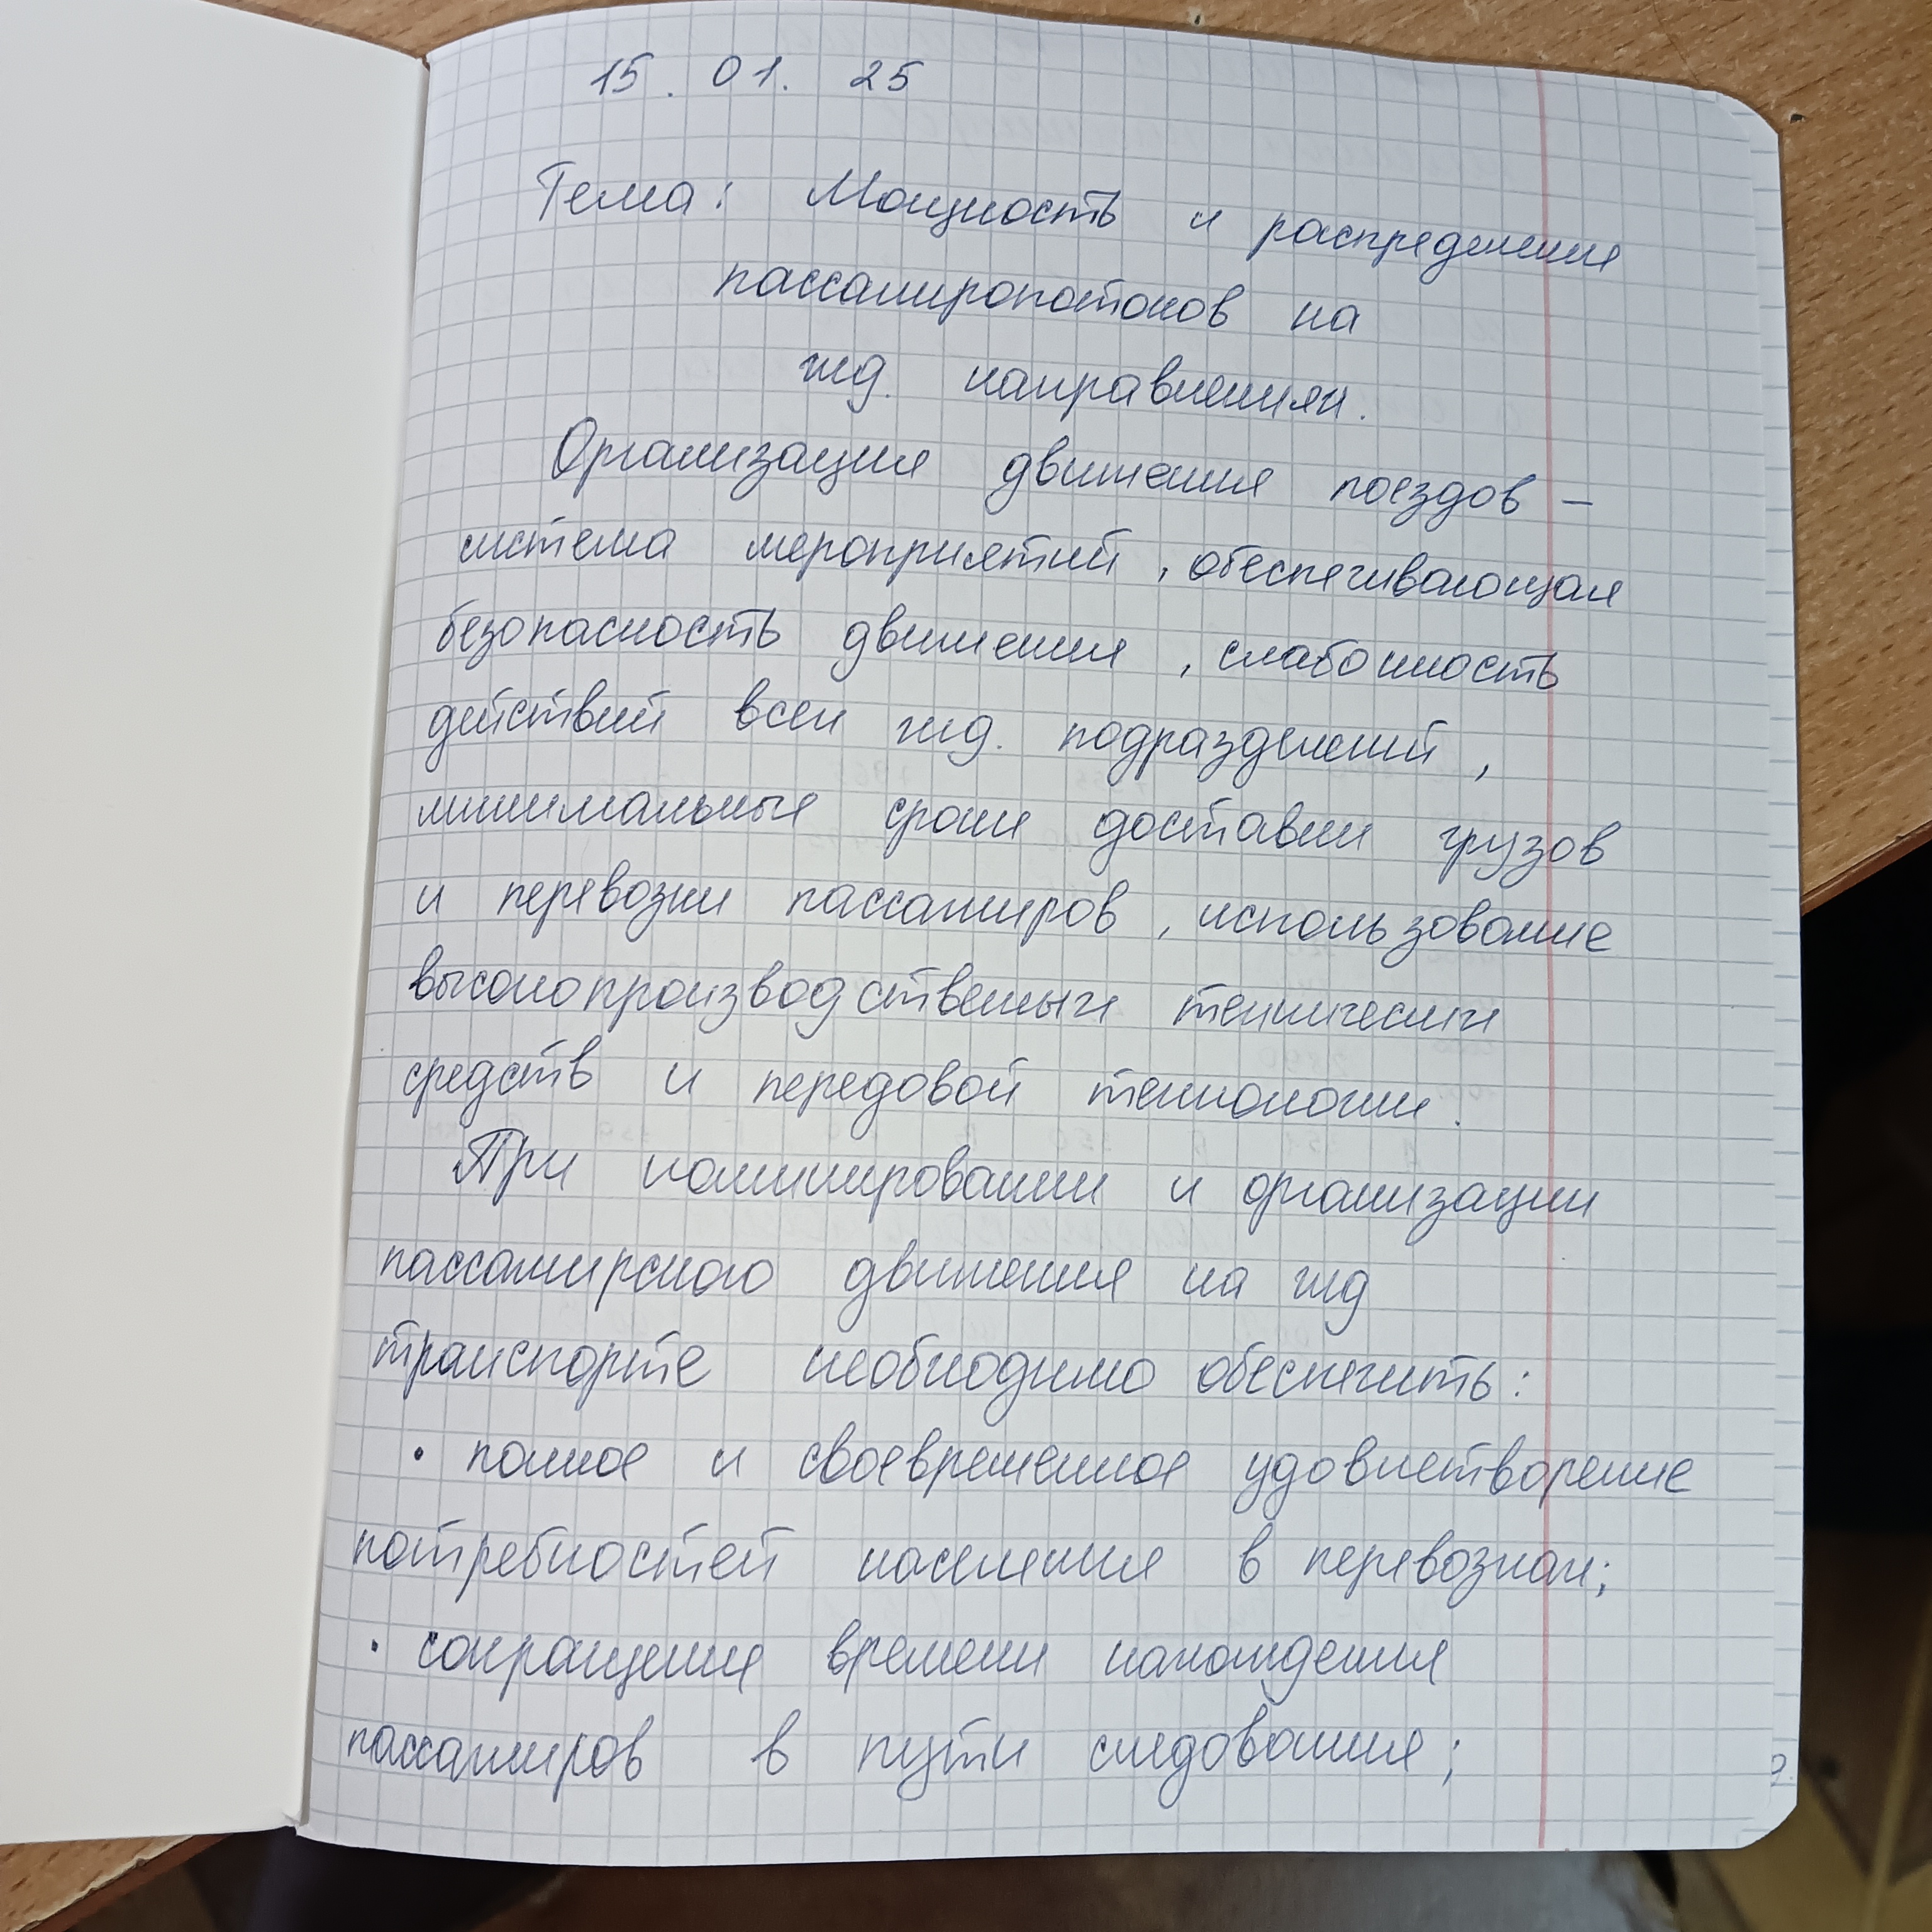 15. 01. 25
Тема: Мощность и распределение
пассажиропотоков на
жд. направлениях.
Организация движения поездов –
система мероприятий, обеспечивающая
безопасность движения, слабонность
действий всех жд. подразделений,
минимальные сроки доставки грузов
и перевозки пассажиров, использование
высокопроизводственных технических
средств и передовой технологии.
При планировании и организации
пассажирского движения на жд
транспорте необходимо обеспечить:
• полное и своевременное удовлетворение
потребностей населения в перевозках;
• сокращение времени нахождения
пассажиров в пути следования;